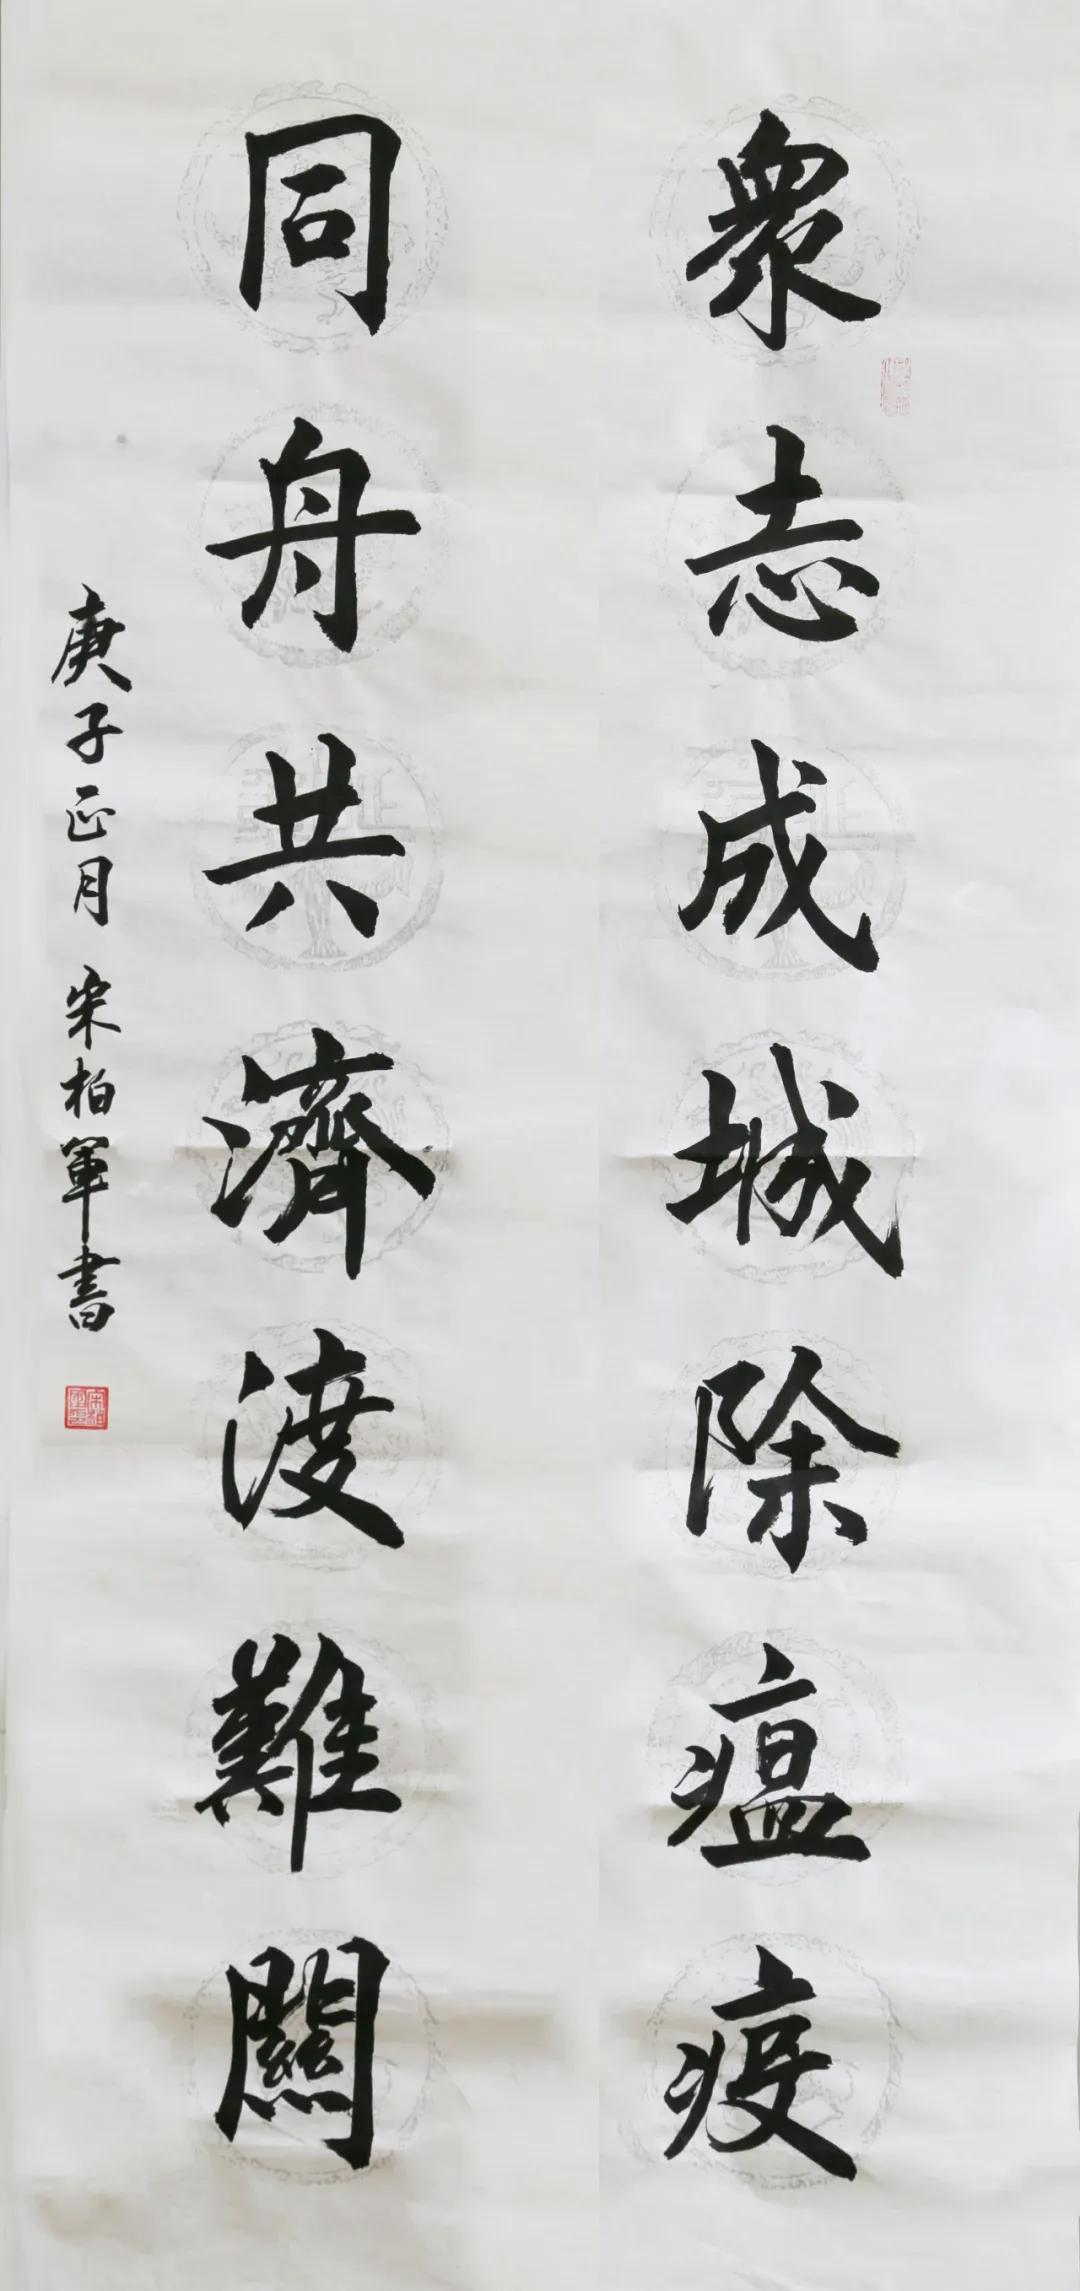 衆志成城除瘟疫
同舟共濟渡難關
庚子正月宋柏軍書